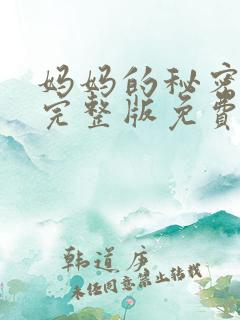 妈妈的秘密
完整版免费
韩道序
未经同意禁止转载